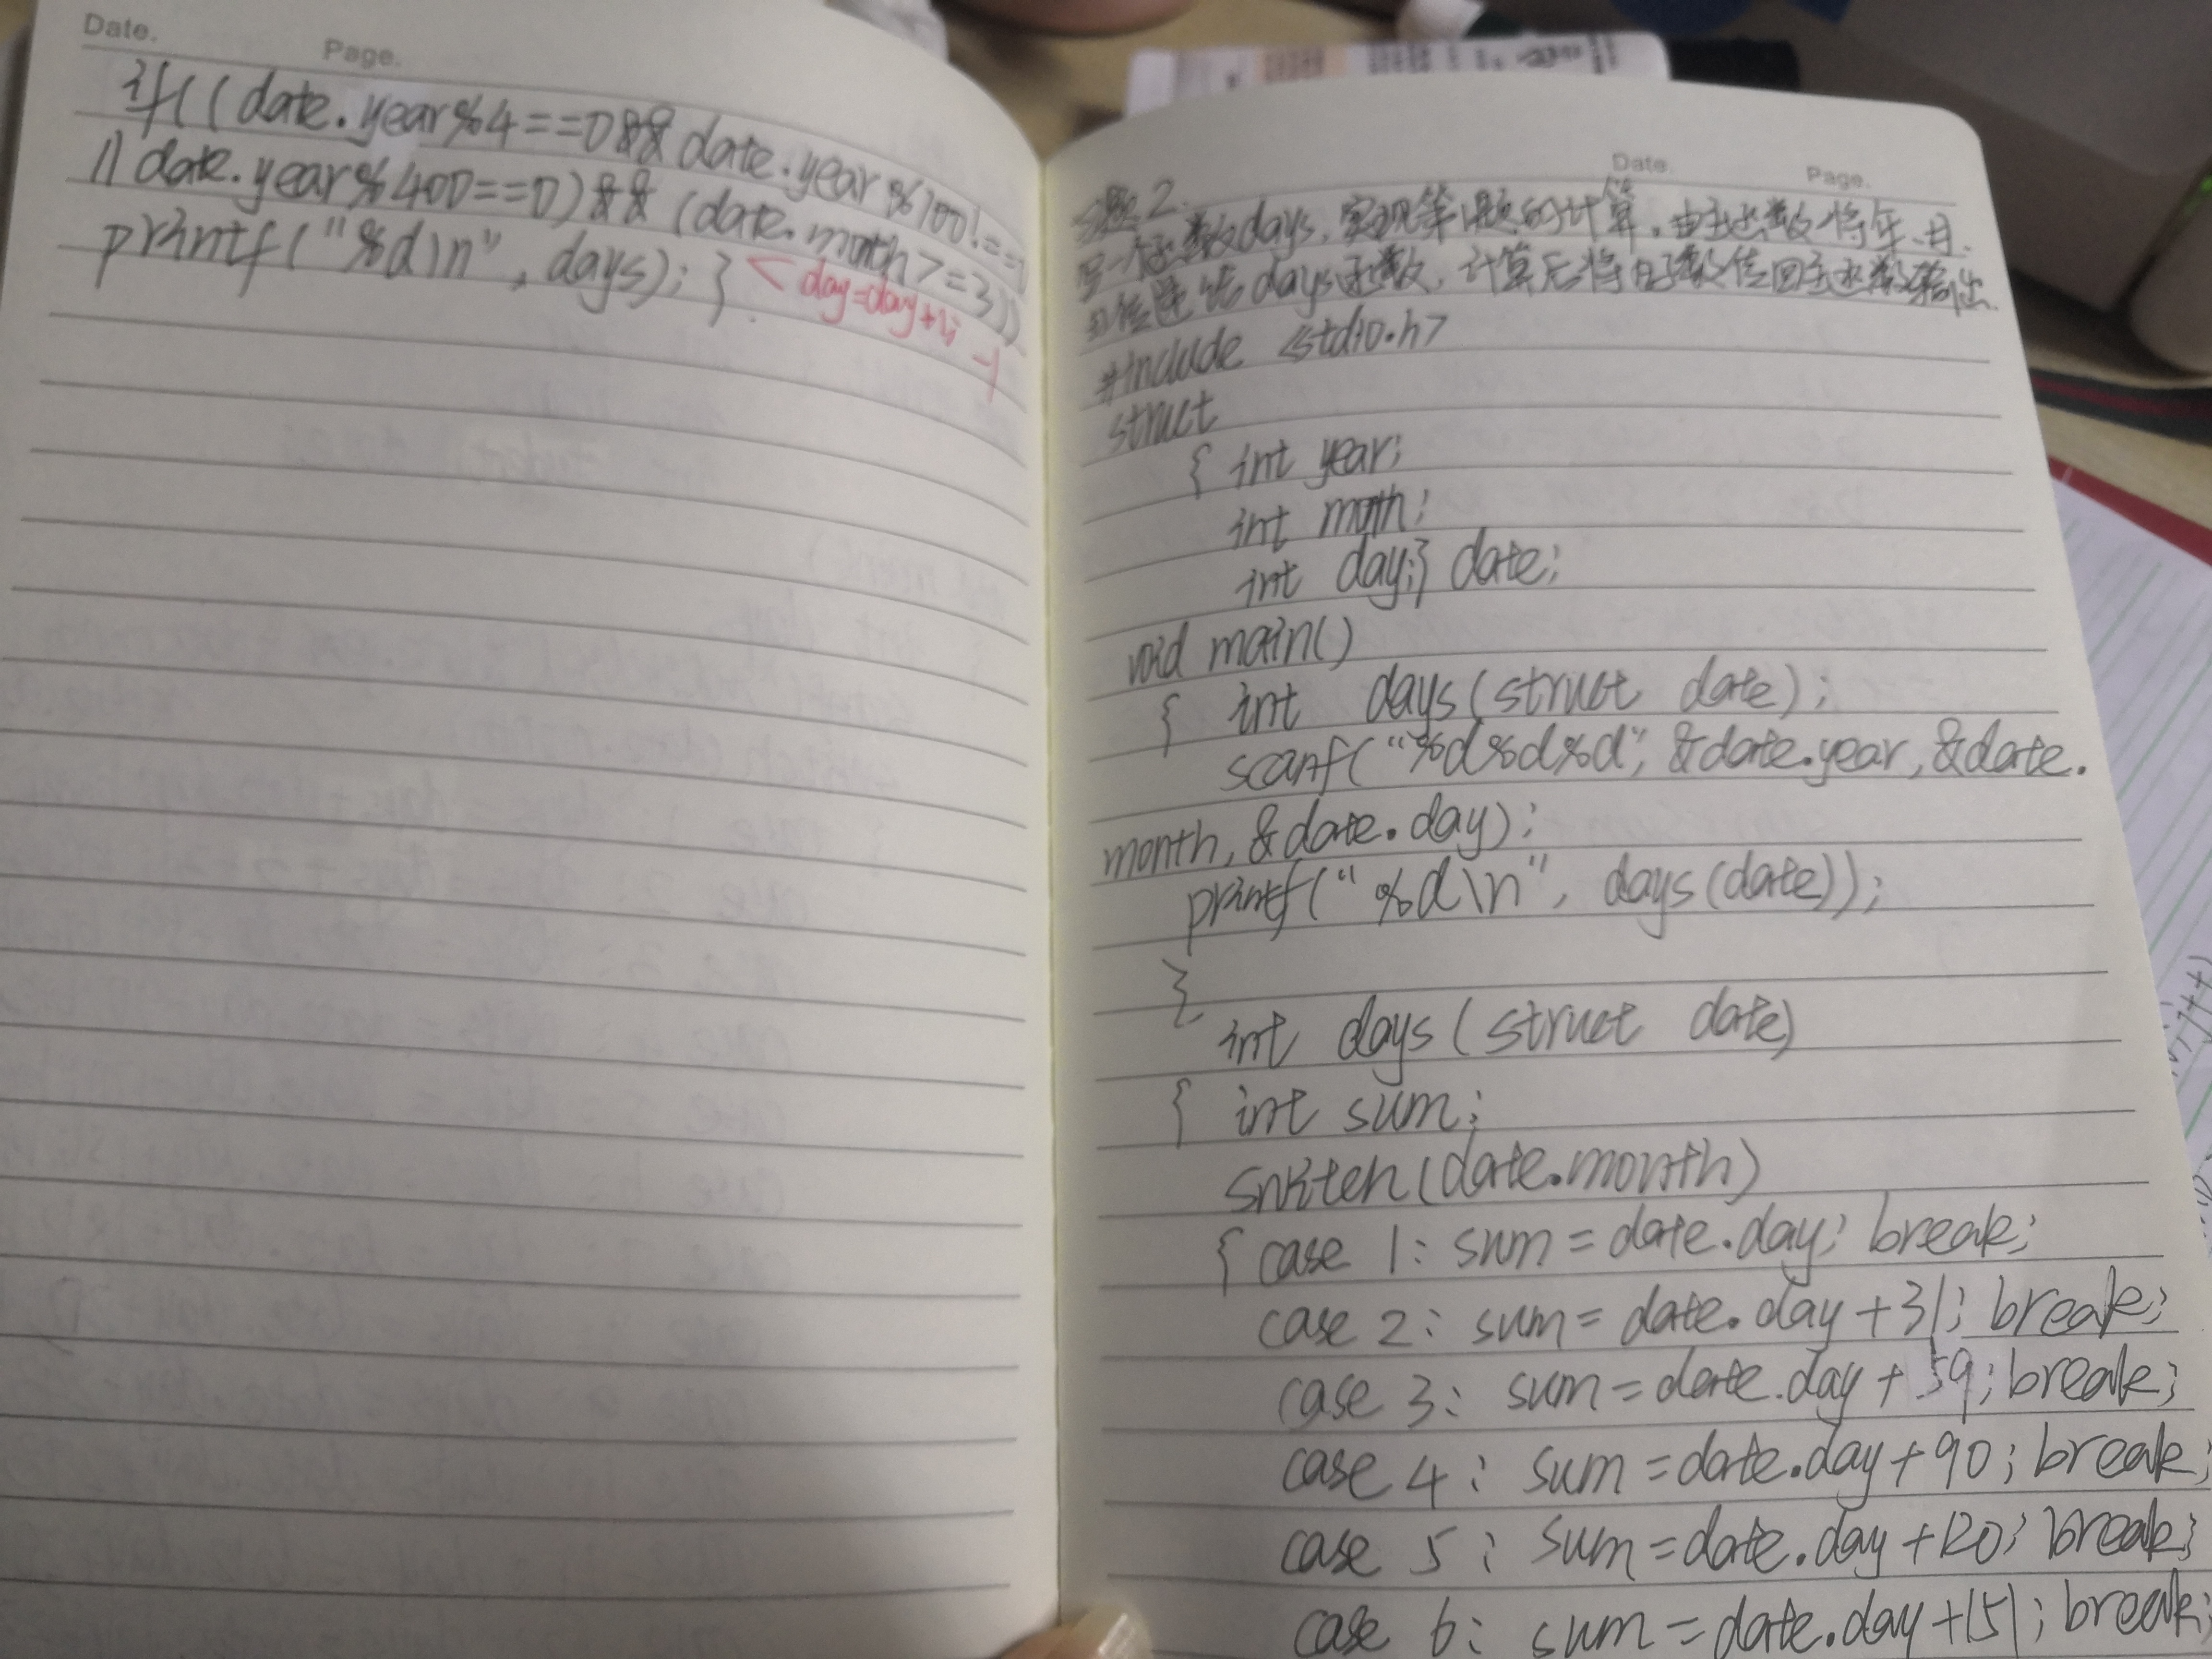 Date.
Page.
if((date.year%4==0&&date.year%100!=
||date.year%400==0)&&(date.month>=3))
printf("%d\n", days); }
day=day+1; -1
Date.
Page.
习题2.
写一个函数days,实现第1题的计算。由主函数将年、月、
日传递给days函数,计算后将日子数传回主函数输出.
#include <stdio.h>
struct
{ int year;
int month;
int day;} date;
void main()
{ int days(struct date);
scanf("%d%d%d", &date.year,&date.
month,&date.day);
printf("%d\n", days(date));
}
int days(struct date)
{ int sum;
switch(date.month)
{ case 1: sum=date.day; break;
case 2: sum=date.day+31; break;
case 3: sum=date.day+59; break;
case 4: sum=date.day+90; break;
case 5: sum=date.day+120; break;
case 6: sum=date.day+151; break;